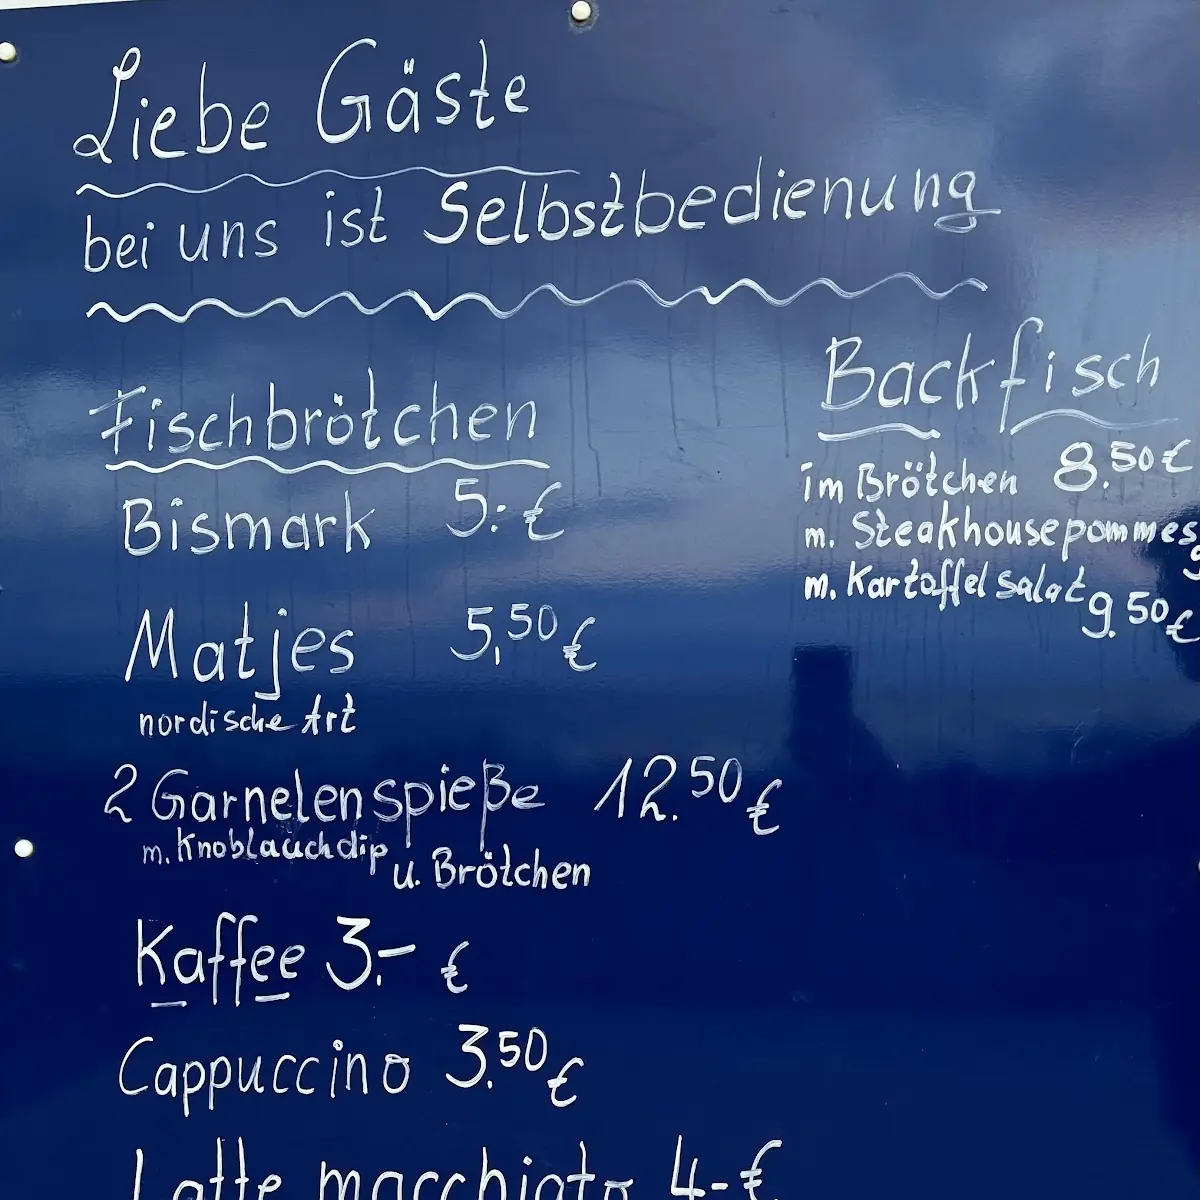 Liebe Gäste
bei uns ist Selbstbedienung
Fischbrötchen
Bismark 5.- €
Matjes 5,50 €
nordische Art
2 Garnelenspieße 12.50 €
m. Knoblauchdip
u. Brötchen
Kaffee 3.- €
Cappuccino 3.50 €
Latte macchiato 4-€
Backfisch
im Brötchen 8.50 €
m. Steakhousepommes
m. Kartoffelsalat 9.50 €